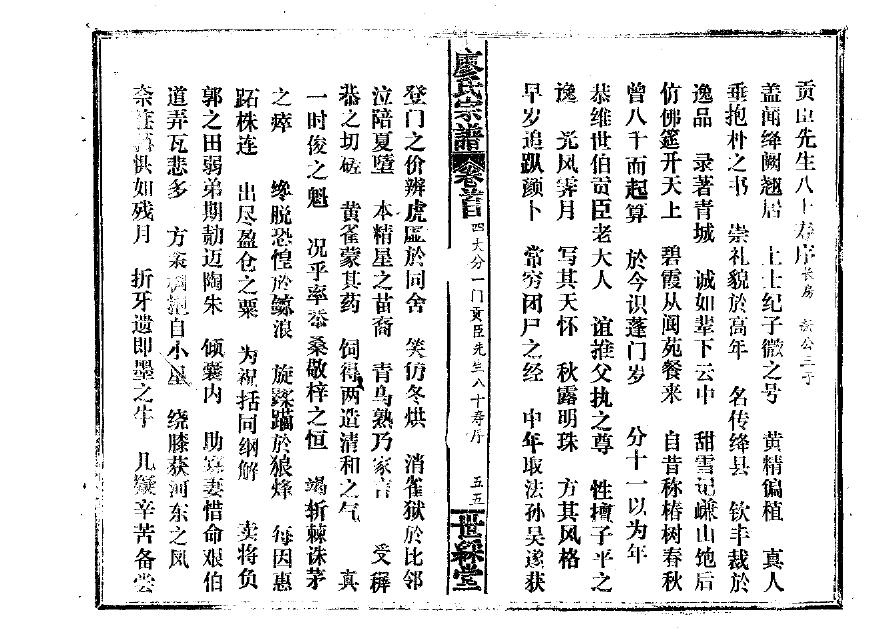 贡臣先生八十寿序 长房 公三子
盖闻绛阙翘居 上士纪子微之号 黄精偏植 真人
垂抱朴之书 崇礼貌於高年 名传绛县 钦丰裁於
逸品 录著青城 诚如辈下云中 甜雪记嵊山饱后
仿佛筵开天上 碧霞从阆苑餐来 自昔称椿树春秋
曾八千而起算 於今识蓬门岁 分十一以为年
恭维世伯贡臣老大人 谊推父执之尊 性擅子平之
逸 光风霁月 写其天怀 秋露明珠 方其风格
早岁追趴颜卜 常穷闭尸之经 中年取法孙吴遂获
廖氏宗谱 卷首 四大分一门贡臣先生八十寿序 五五 世䌽堂
登门之价辨虎區於同舍 笑仿冬烘 消雀狱於比邻
泣陪夏墍 本精星之苗裔 青鸟熟乃家言 受稺
恭之切磋 黄雀蒙其药 饲得两造清和之气 真
一时俊之魁 况乎率桑敬梓之恒 竭斩棘诛茅
之瘁 纔脱恐惶於鲸浪 旋蹂躏於狼烽 每因惠
跖株连 出尽盈仓之粟 为祝括同纲解 卖将负
郭之田弱弟期勷迈陶朱 倾囊内 助寡妻惜命艰伯
道弄瓦悲多 方裯自小星 绕膝获河东之凤
奈惧如残月 折牙遗即墨之牛 几疑辛苦备尝